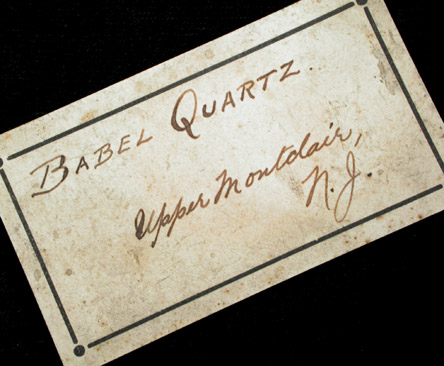 BABEL QUARTZ.
Upper Montclair,
N.J.